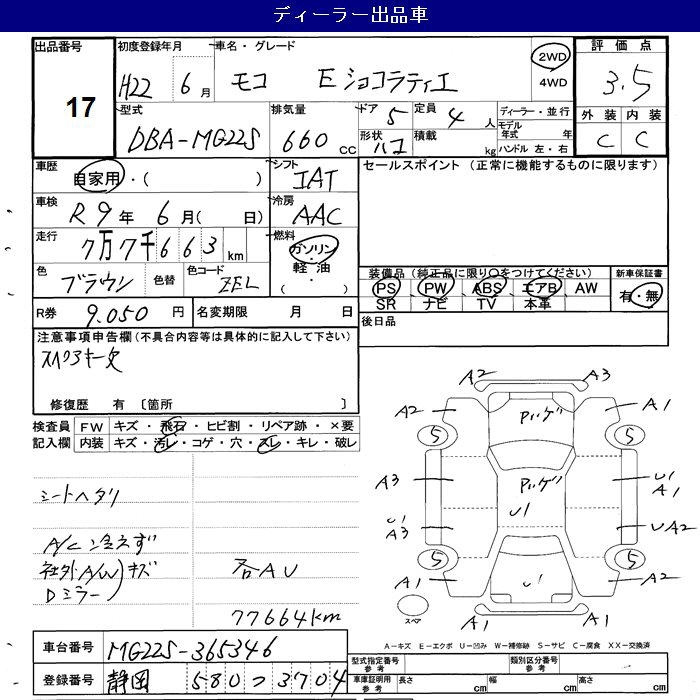 ディーラー出品車
出品番号 17
初度登録年月 H22 年 6月
車名・グレード モコ E ショコラティエ
2WD
4WD
評価点 3.5
外装 C 内装 C
型式 DBA-MG22S
排気量 660 cc
ドア 5
形状 ハコ
定員 4人
積載 kg
ディーラー・並行
モデル年式 年
ハンドル 左・右
車歴 自家用・( )
シフト IAT
車検 R9年 6月( 日)
冷房 AAC
走行 7万7千663km
燃料 ガソリン・軽油・( )
色 ブラウン 色替 色コード ZEL
セールスポイント (正常に機能するものに限ります)
装備品(純正品に限り○をつけてください)
PS PW ABS エアB AW
SR ナビ TV 本革
新車保証書
有・無
R券 9.050 円
名変期限 月 日
後日品
注意事項申告欄(不具合内容等は具体的に記入して下さい)
スペアキー欠
修復歴 有 〔箇所 〕
検査員記入欄
FW キズ・飛石・ヒビ割・リペア跡・×要
内装 キズ・汚レ・コゲ・穴・スレ・キレ・破レ
シートヘタリ
A/C冷えず
社外A/W)キズ
Dミラー)
各AU
77664km
A2 A3
A2 Pハゲ A1
5 5
A3 Pハゲ U1 A1
U1
U1 A3 UA2
5 5
A1 U1 A2
スペア
A1 A1
A-キズ E-エクボ U-凹み W-補修跡 S-サビ C-腐食 XX-交換済
車台番号 MG22S-365346
登録番号 静岡 580 つ 3704
型式指定番号 参考
類別区分番号 参考
車庫証明用 参考 長さ cm 幅 cm 高さ cm